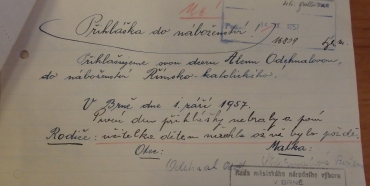 Přihláška do náboženství
Přihlašujeme svou dceru Alenu Odehnalovou,
do náboženství Římsko-katolického.
V Brně dne 1. září 1957.
První den přihlášky nebraly a paní
Rodiče: učitelka dětem řekla až už bylo pozdě.
Otec: Matka:
Odehnal
Rada městského národního výboru
v Brně